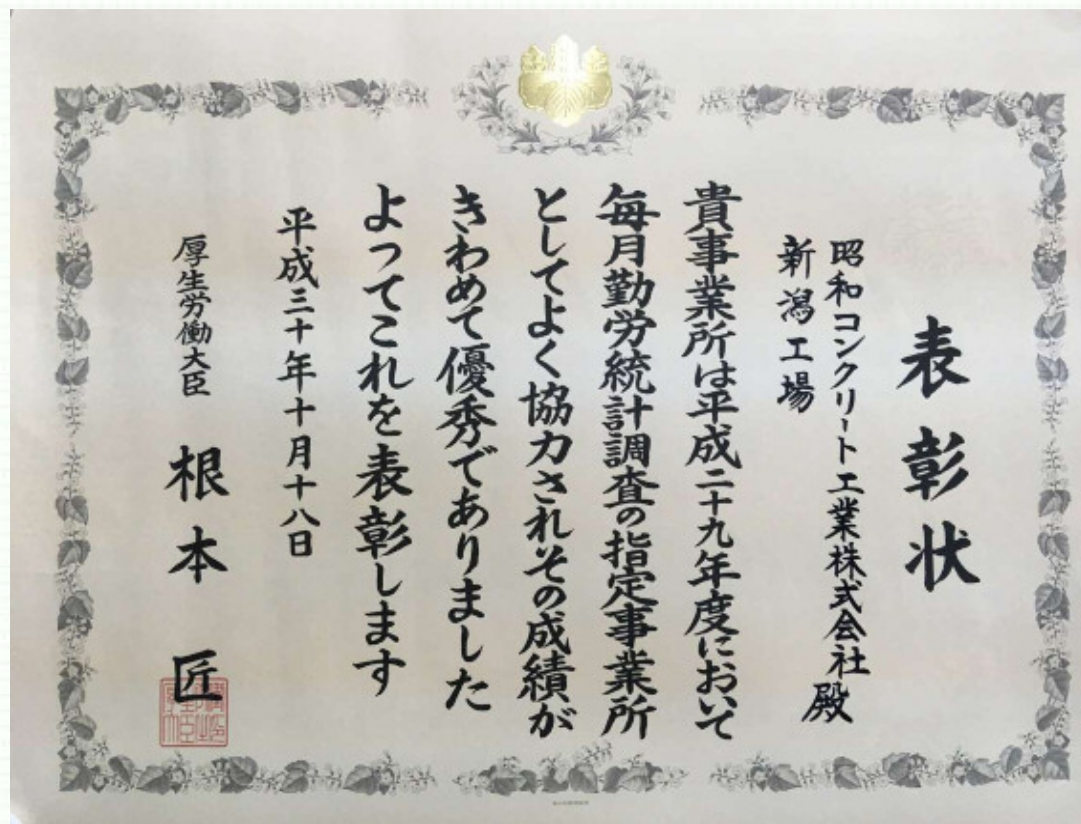 表彰状
昭和コンクリート工業株式会社
新潟工場
殿
貴事業所は平成二十九年度において
毎月勤労統計調査の指定事業所
としてよく協力されその成績が
きわめて優秀でありました
よってこれを表彰します
平成三十年十月十八日
厚生労働大臣 根本匠